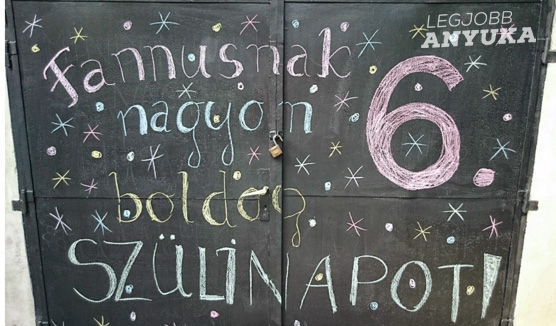 LEGJOBB
ANYUKA
Fannusnak
nagyon
6.
boldog
SZÜLINAPOT!